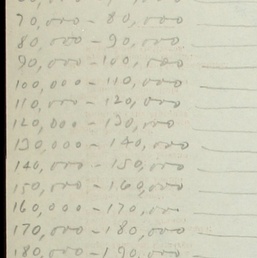 70,000 - 80,000
80,000 - 90,000
90,000 - 100,000
100,000 - 110,000
110,000 - 120,000
120,000 - 130,000
130,000 - 140,000
140,000 - 150,000
150,000 - 160,000
160,000 - 170,000
170,000 - 180,000
180,000 - 190,000